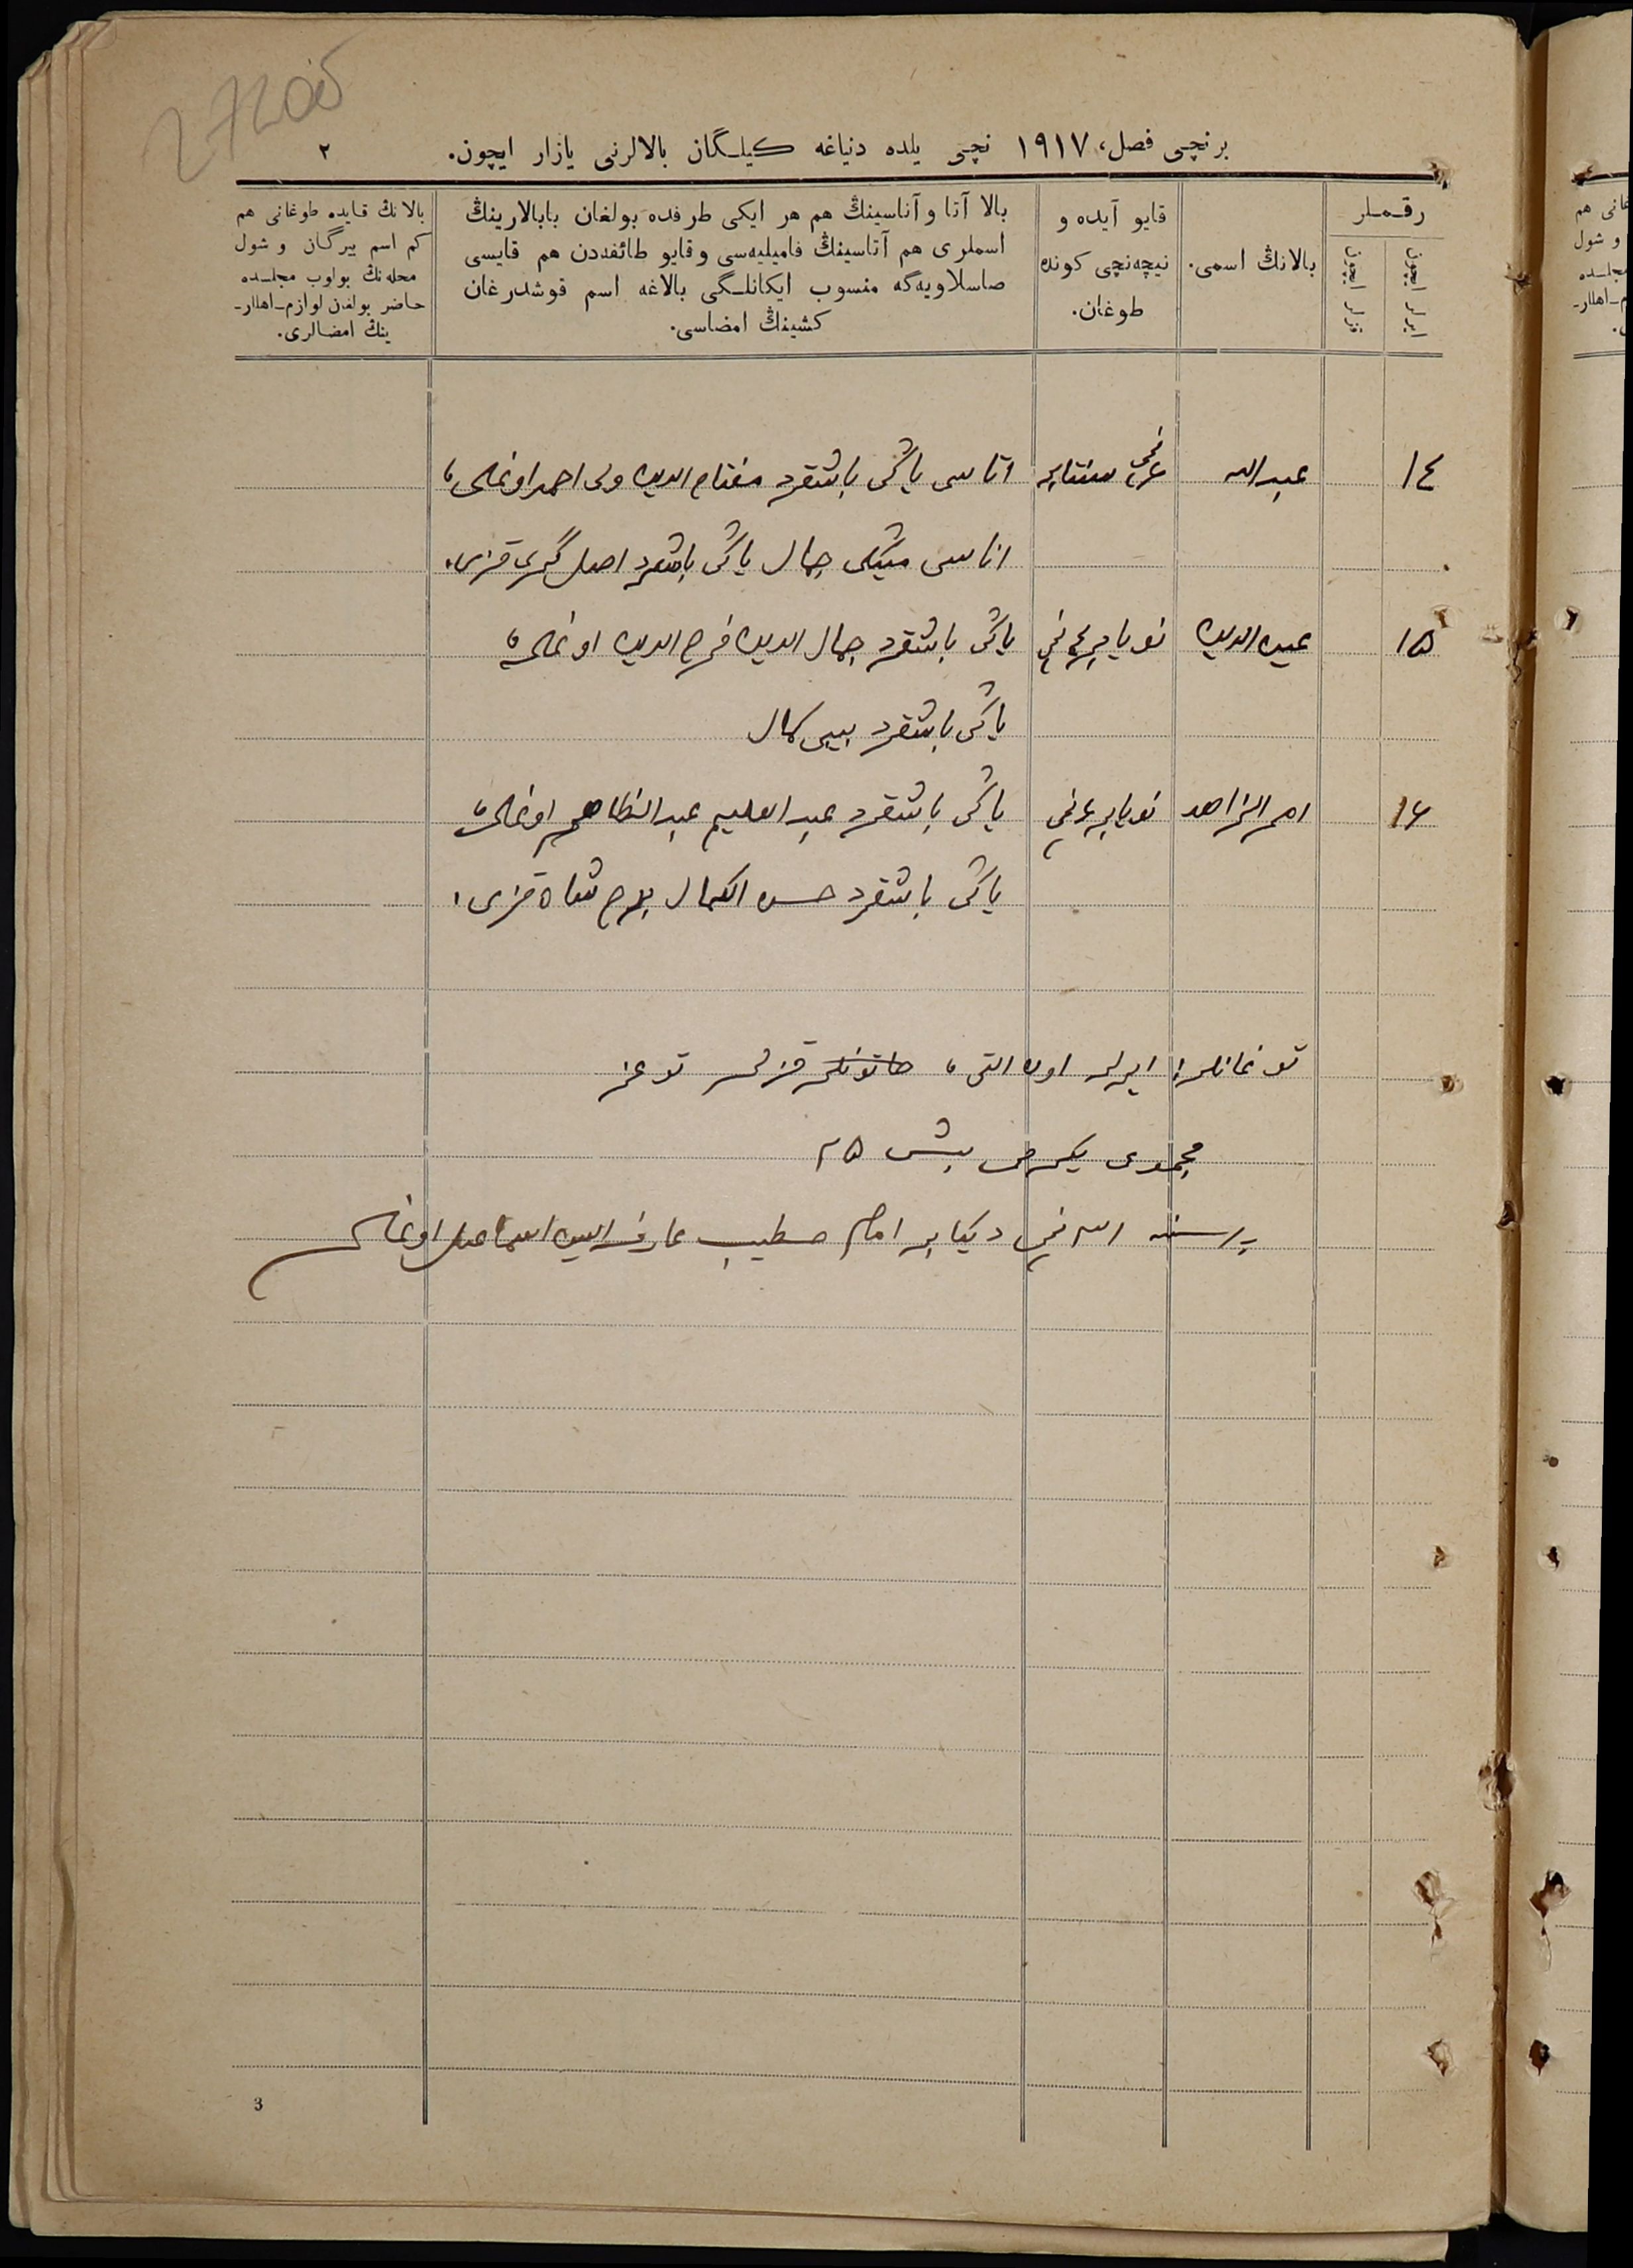 27200б
برنچی فصل، ١٩١٧ نچی یلده دنیاغه کیلـگان بالالرنی یازار ایچون. ٢
رقـملر
ایرلر ایچون
قزلر ایچون
بالانڭ اسمی.
قایو آیده و
نیچه‌نچی کونده
طوغان.
بالا آتا و آناسینڭ هم هر ایکی طرفده بولغان بابالارینڭ
اسملری هم آتاسینڭ فامیلیه‌سی و قایو طائفه‌دن هم قایسی
صاسلاویه‌گه منسوب ایکانلـگی بالاغه اسم قوشدرغان
کشینڭ امضاسی.
بالانڭ قایده طوغانی هم
کم اسم بیرگان و شول
محله‌نڭ بولوب مجلسده
حاضر بولغن لوازم اهللر
ینڭ امضالری.
١٤ عبدالله سنتابر اتاسی یاڭی باشقرد مفتاح الدین ولی احمد اوغلی،
اناسی جمال یاڭی باشقرد قزی.
١٥ الدین نویابر یاڭی باشقرد جمال الدین فرح الدین اوغلی،
یاڭی باشقرد بیبی کمال
١٦ نویابر یاڭی باشقرد عبدالعلیم عبدالظاهر اوغلی،
یاڭی باشقرد حسن الکمال شاه قزی.
توغانلر: ایرلر اون التی، قزلر توغز
مجموعی یکرمی بیش ٢٥
دیکابر امام خطیب عارف الدین اسماعیل اوغلی
3